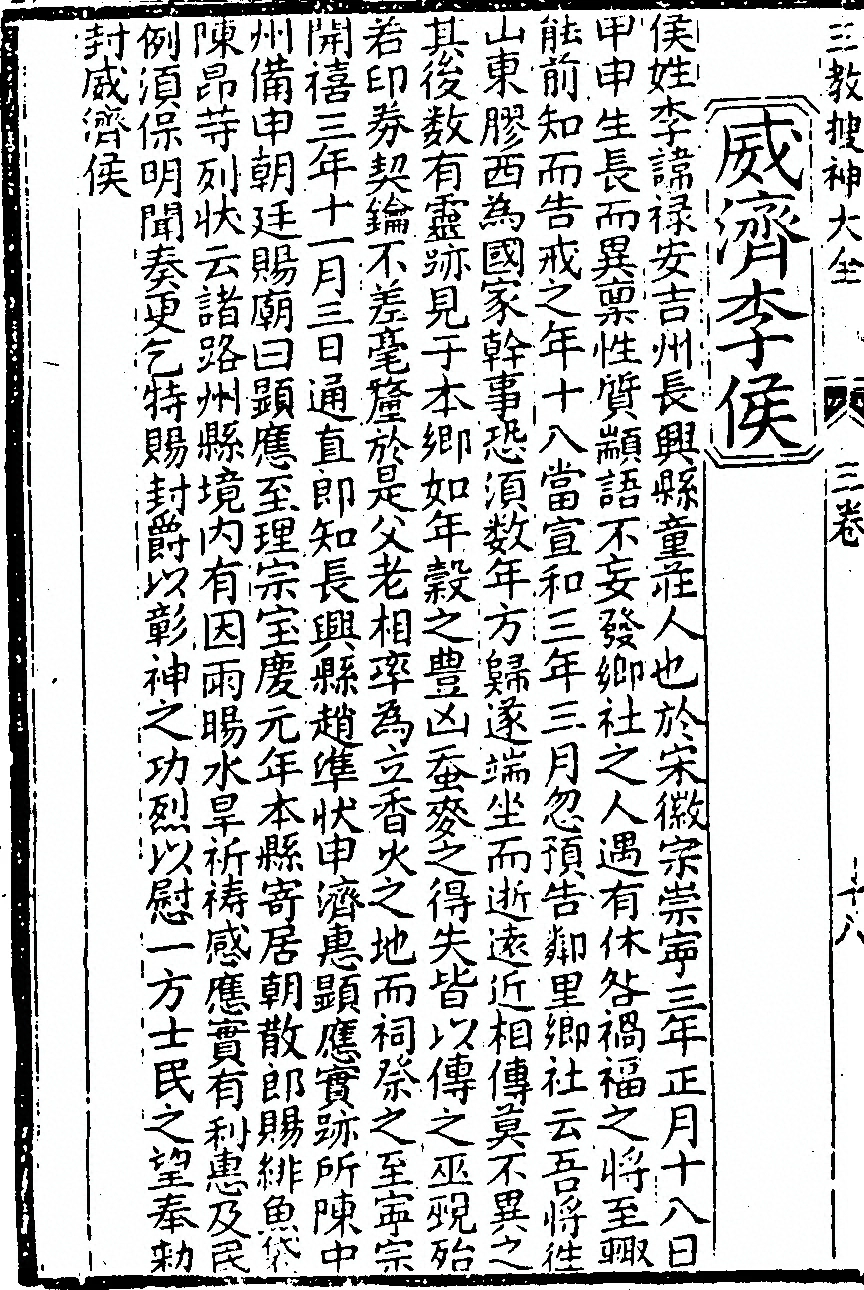 三教搜神大全
三卷
十八
威濟李侯
侯姓李諱禄安吉州長興縣童莊人也於宋徽宗崇寧三年正月十八日
甲申生長而異禀性質顓語不妄發鄉社之人遇有休咎禍福之將至輙
能前知而告戒之年十八當宣和三年三月忽預告鄰里鄉社云吾將徃
山東膠西為國家幹事恐須数年方歸遂端坐而逝遠近相傳莫不異之
其後数有靈跡見于本鄉如年穀之豊凶蚕麥之得失皆以傳之巫覡殆
若印券契鑰不差毫釐於是父老相率為立香火之地而祠祭之至寧宗
開禧三年十一月三日通直郎知長興縣趙準狀申濟惠顯應實跡所陳中
州備申朝廷賜廟曰顯應至理宗宝慶元年本縣寄居朝散郎賜緋魚袋
陳昂等列狀云諸路州縣境内有因雨暘水旱祈祷感應實有利惠及民
例須保明聞奏更乞特賜封爵以彰神之功烈以慰一方士民之望奉勑
封威濟侯